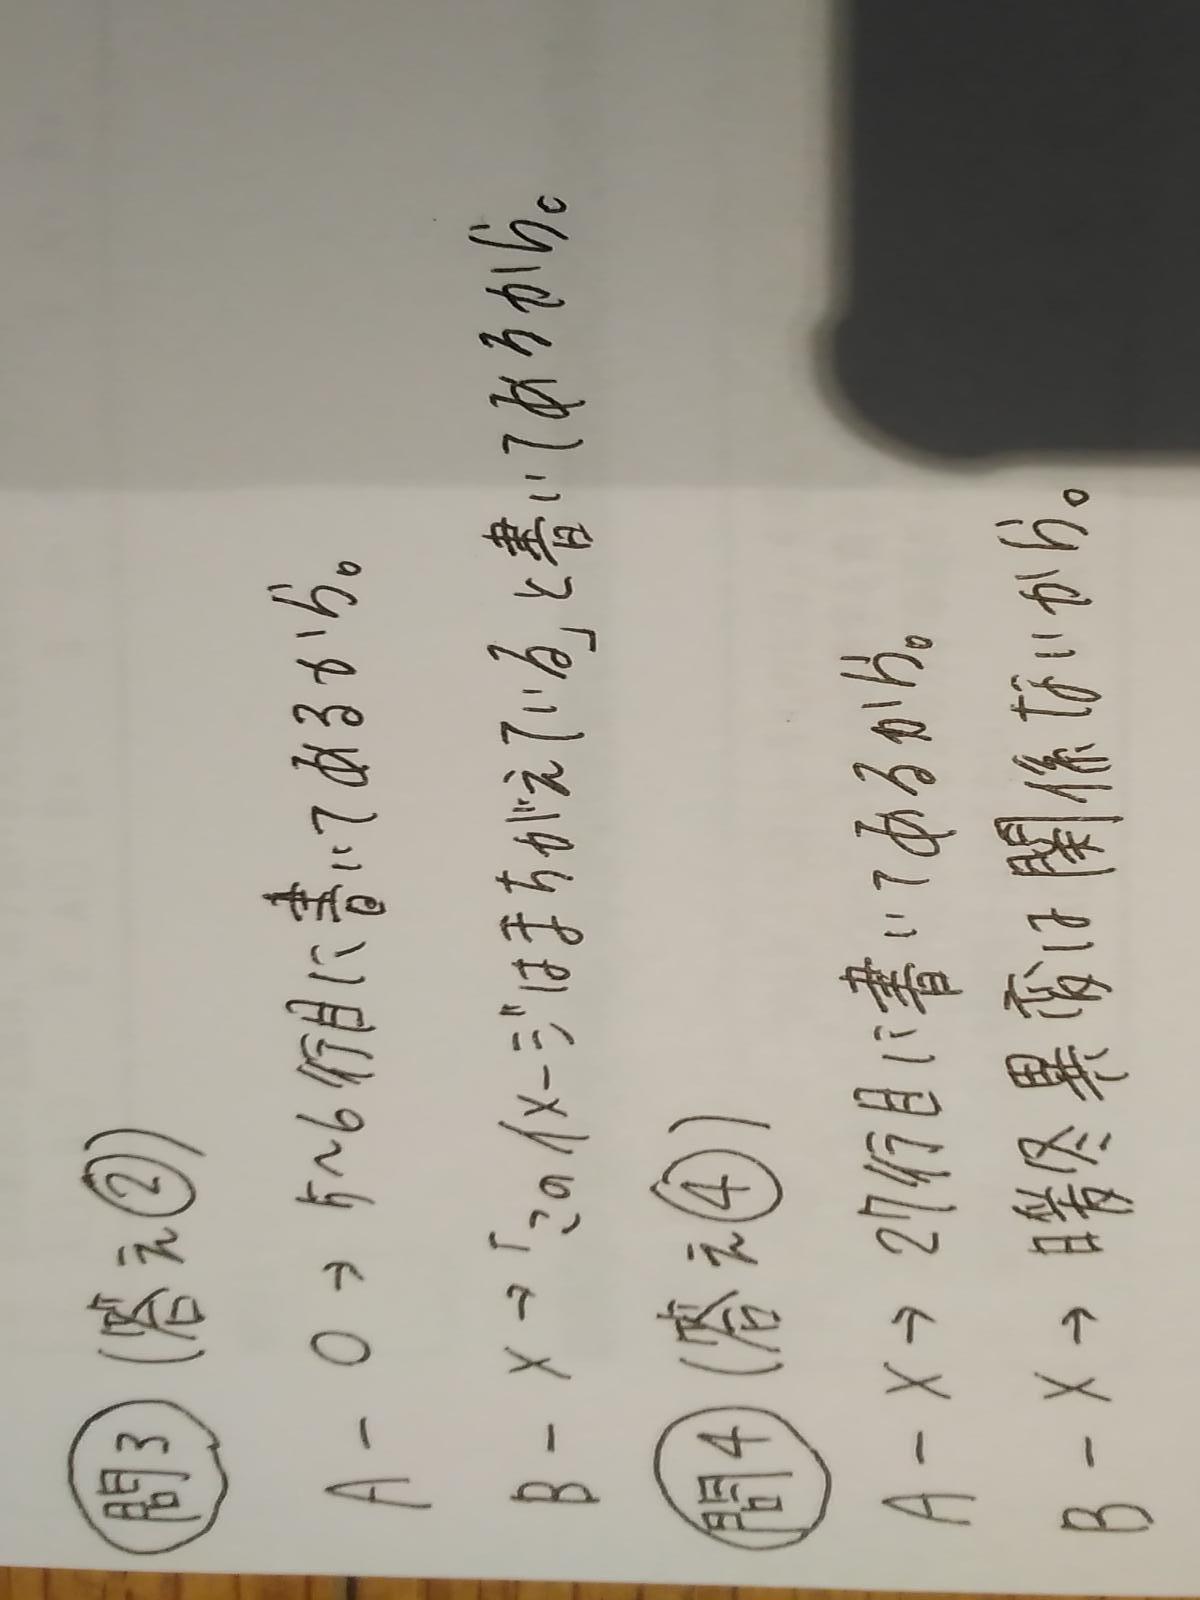 問3 (答え②)
A - ○ → 5～6行目に書いてあるから。
B - × → 「このイメージはまちがえている」と書いてあるから。
問4 (答え④)
A - × → 27行目に書いてあるから。
B - × → 勝答異変は関係ないから。